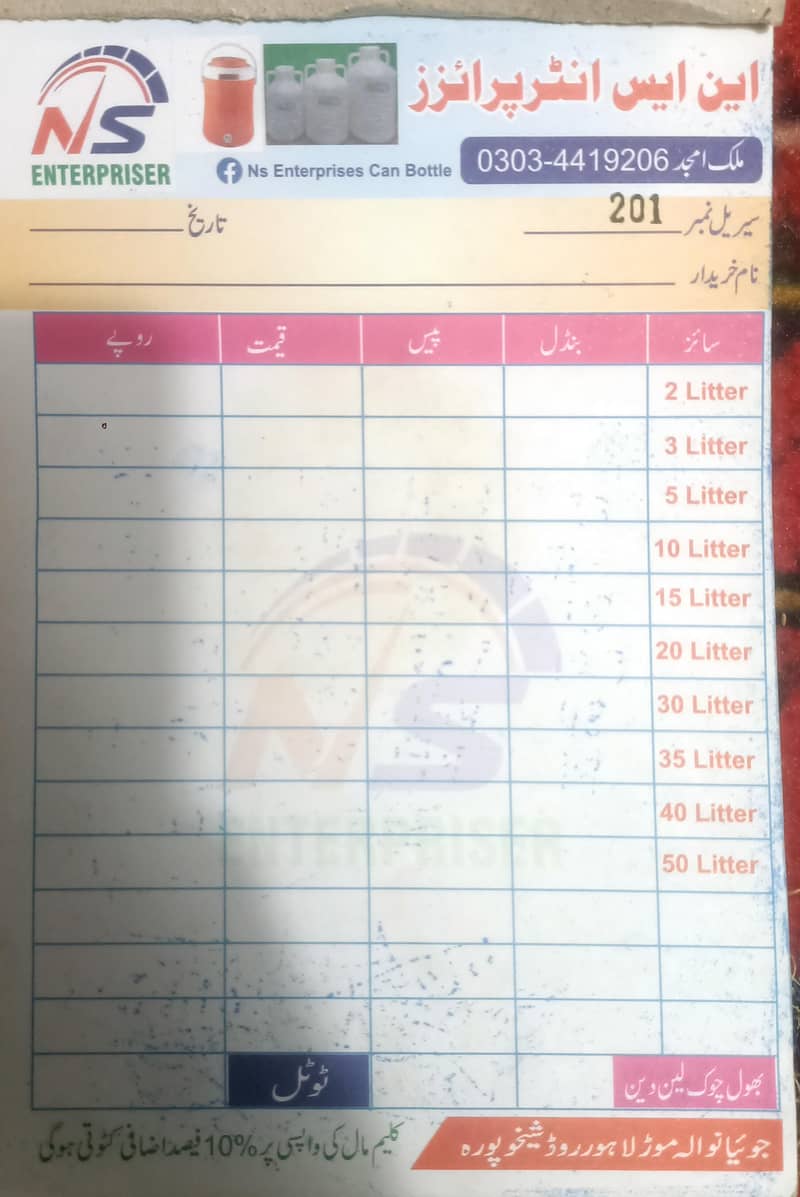 NS
ENTERPRISER
این ایس انٹرپرائزز
ملک امجد 0303-4419206
Ns Enterprises Can Bottle
سیریل نمبر 201 تاریخ
نام خریدار
سائز بنڈل پیس قیمت روپے
2 Litter
3 Litter
5 Litter
10 Litter
15 Litter
20 Litter
30 Litter
35 Litter
40 Litter
50 Litter
NS
ENTERPRISER
بھول چوک لین دین ٹوٹل
جوئیانوالہ موڑ لاہور روڈ شیخوپورہ
کلیم مال کی واپسی پر 10% فیصد اضافی کٹوتی ہوگی